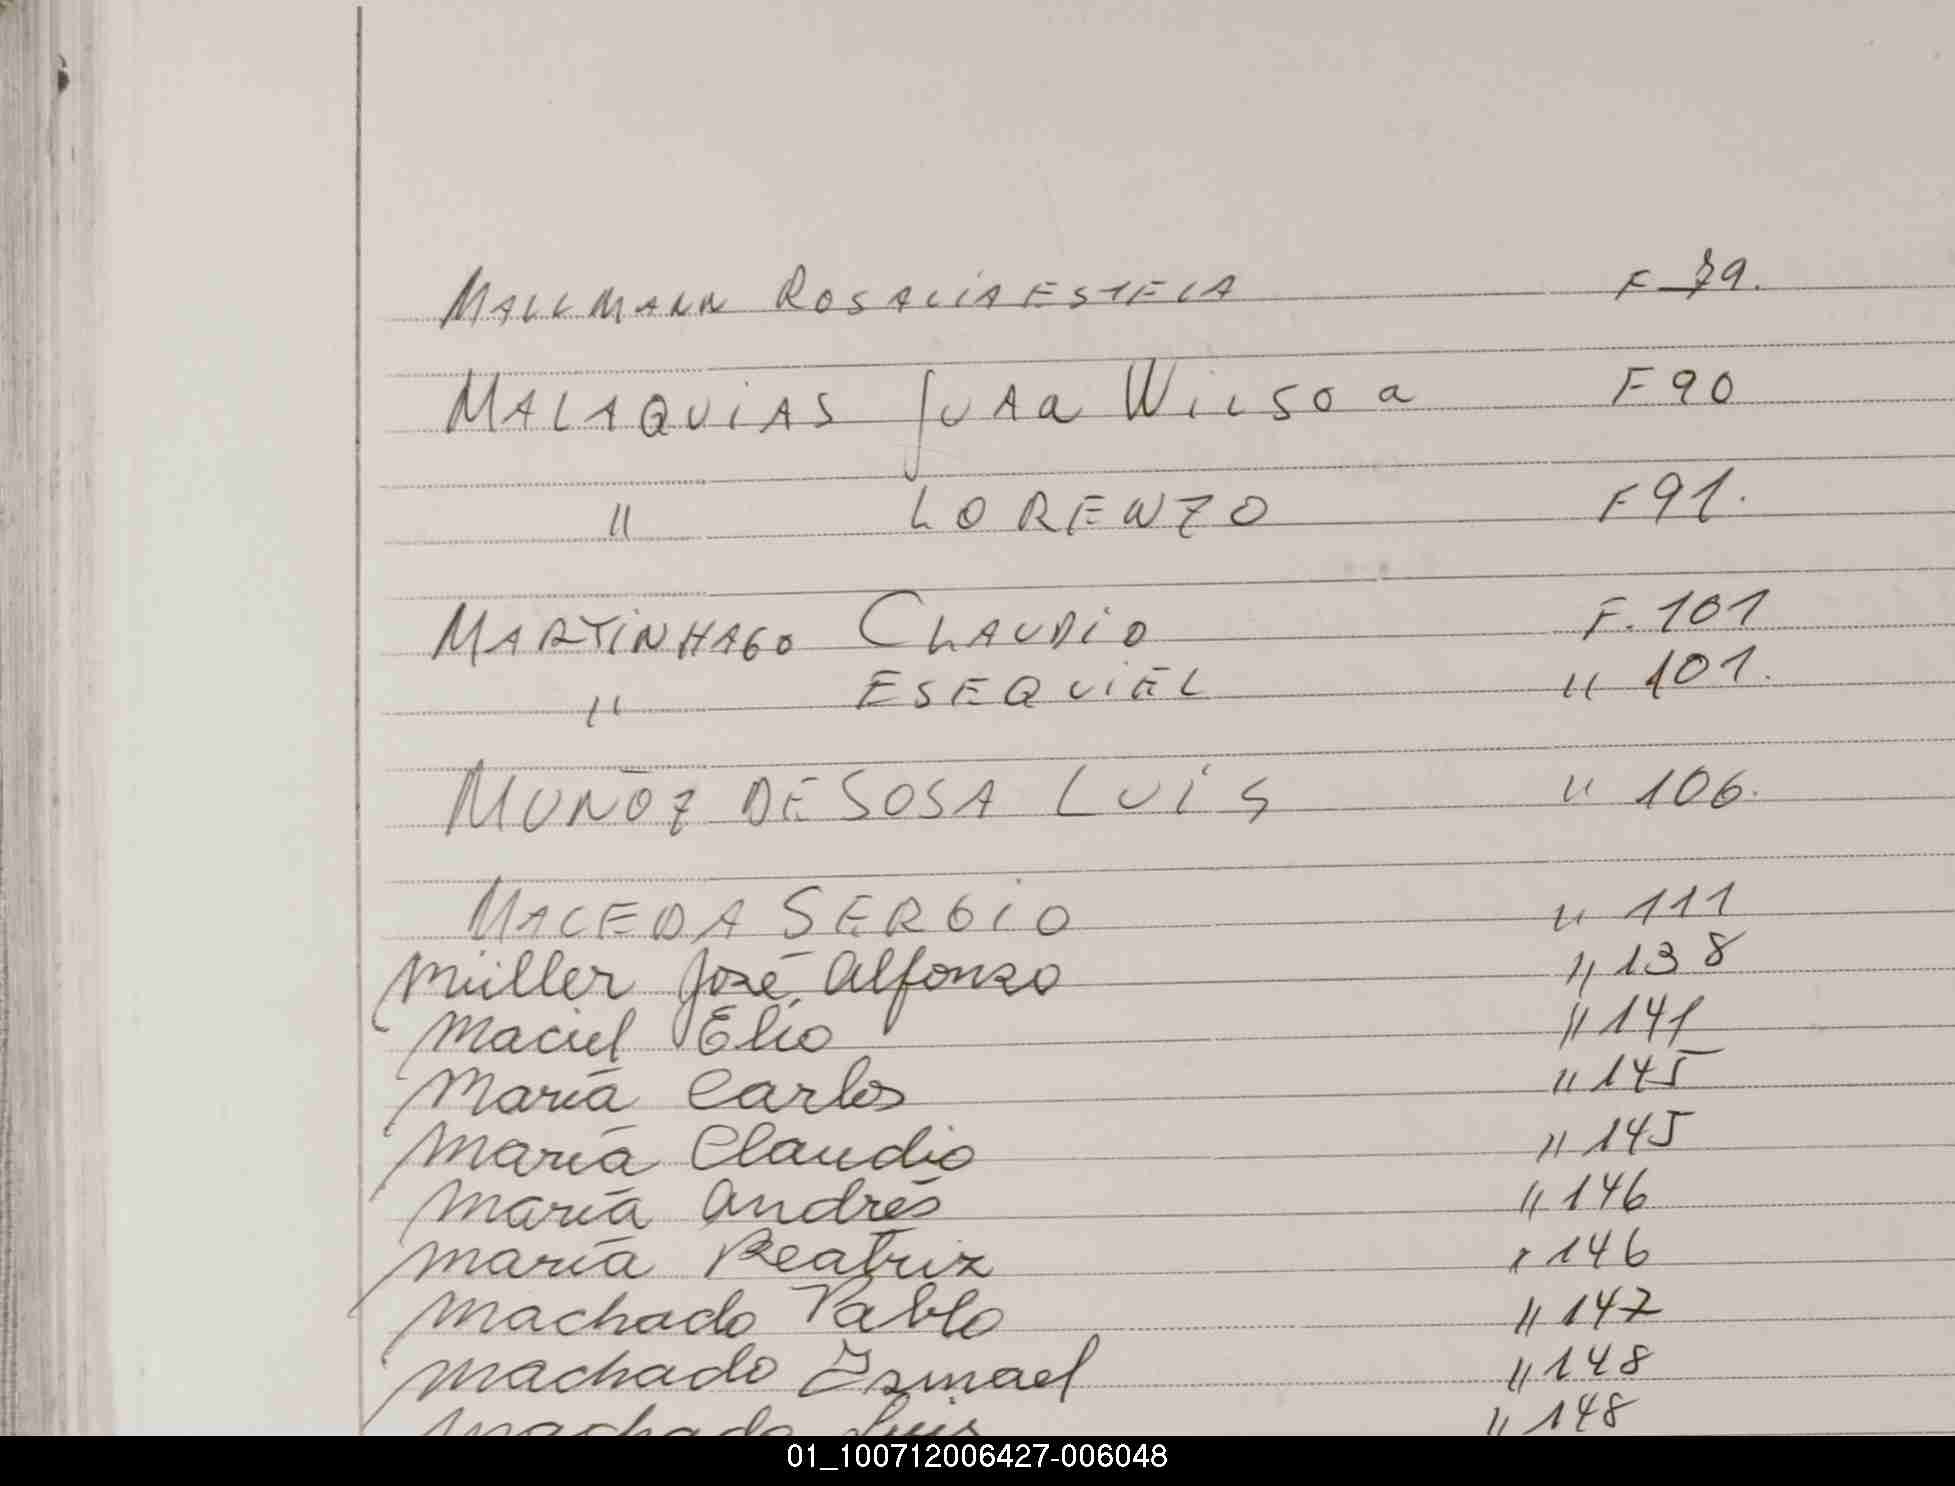 MALLMANN ROSALIA ESTELA F 79.
MALAQUIAS JUAN WILSON F 90
" LORENZO F 91.
MARTINHAGO CLAUDIO F. 101
" ESEQUIEL " 101.
MUÑOZ DE SOSA LUIS " 106.
MACEDA SERGIO " 111
Müller José Alfonzo " 138
Maciel Elio " 141
María Carlos " 145
María Claudio " 145
María Andrés " 146
María Beatriz " 146
Machado Pablo " 147
Machado Ismael " 148
Machado Luis " 148
01_100712006427-006048